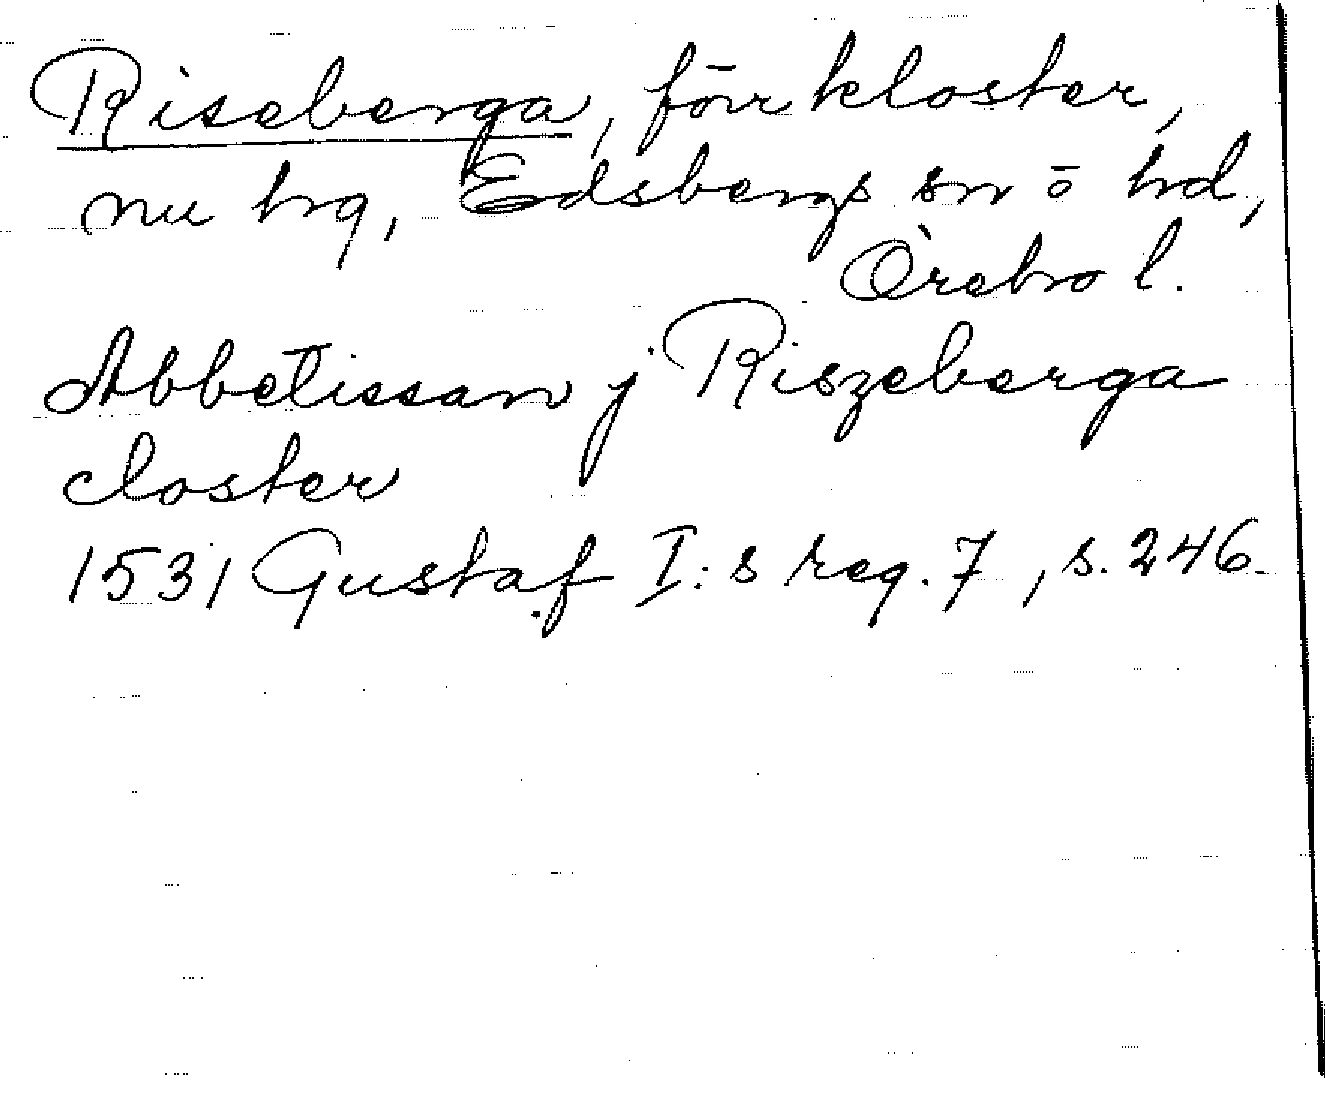 Riseberga, förr kloster,
nu hrg, Edsbergs sn ō hd,
Örebro l.
Abbetissan j Riszeberga
closter
1531 Gustaf I:s reg. 7, s. 246.